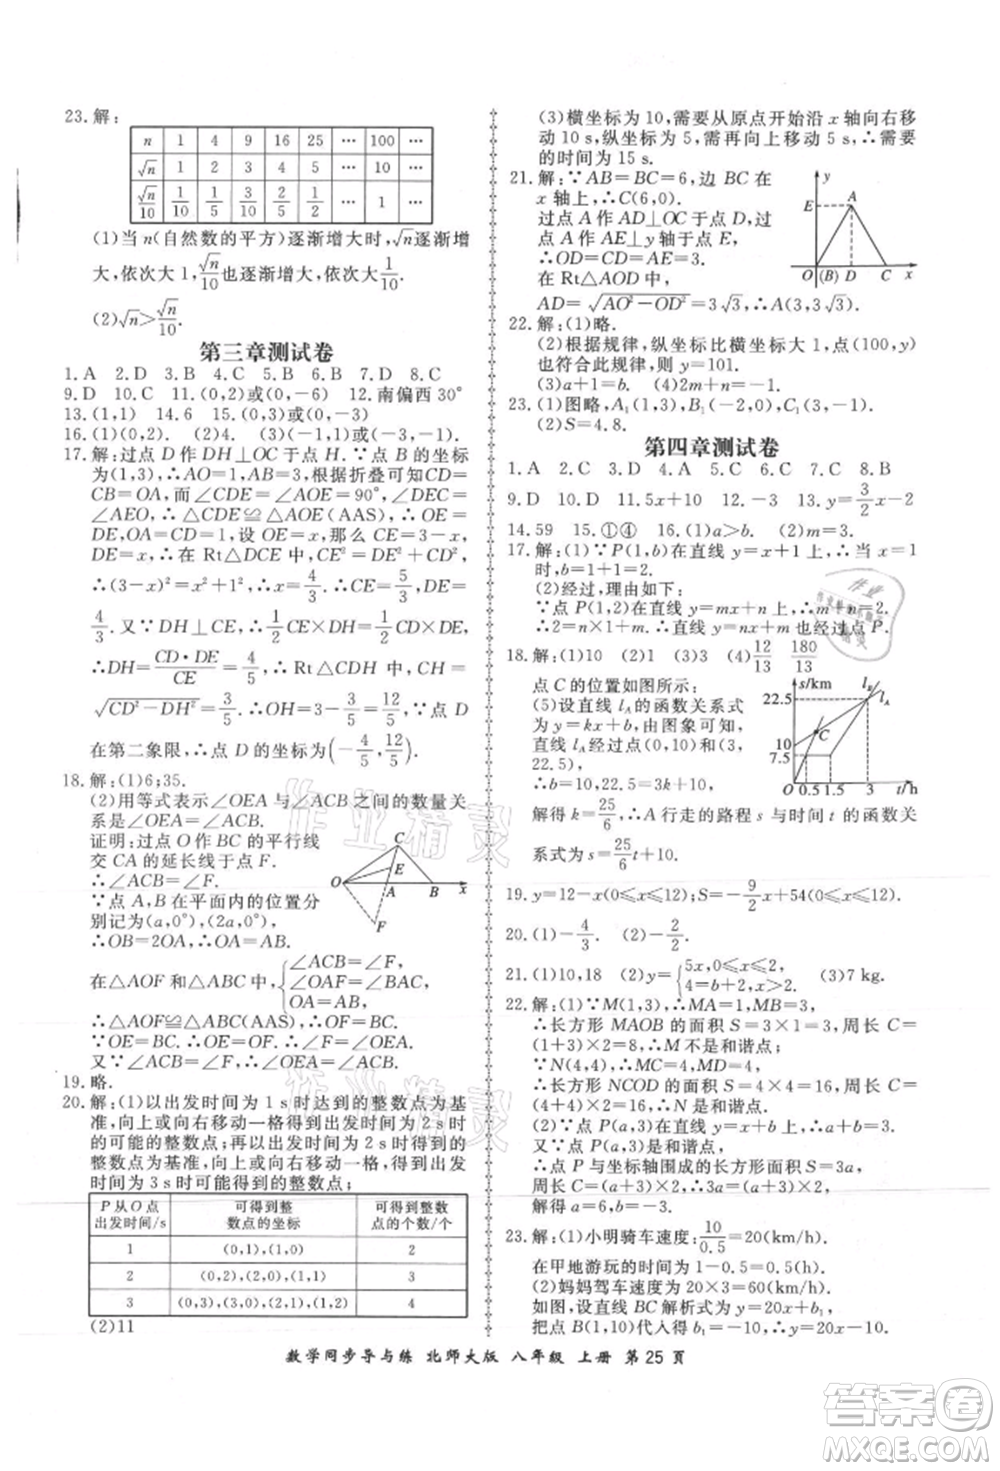 23.解:
n 1 4 9 16 25 … 100 …
√n 1 2 3 4 5 … 10 …
√n/10 1/10 1/5 3/10 2/5 1/2 … 1 …
(1)当 n(自然数的平方)逐渐增大时,√n逐渐增
大,依次大 1,√n/10也逐渐增大,依次大 1/10.
(2)√n>√n/10.
第三章测试卷
1. A 2. D 3. B 4. C 5. B 6. D 7. D 8. C
9. D 10. C 11. (0,2)或(0,-6) 12. 南偏西 30°
13. (1,1) 14. 6 15. (0,3)或(0,-3)
16. (1)(0,2). (2)4. (3)(-1,1)或(-3,-1).
17. 解:过点 D 作 DH⊥OC 于点 H. ∵点 B 的坐标
为(1,3),∴AO=1,AB=3. 根据折叠可知:
CD=OA, 而∠CDE=∠AOE=90°,∠DEC=
∠AEO,∴△CDE≌△AOE(AAS),∴OE=
DE,OA=CD=1, 设 OE=x, 那么 CE=3-x,
DE=x,∴在 Rt△DCE 中,CE²=DE²+CD²,
∴(3-x)²=x²+1²,∴x=4/3.∴CE=5/3,DE=
4/3. 又∵DH⊥CE,∴1/2CE×DH=1/2CD×DE,
∴DH=CD·DE/CE=4/5,∴Rt△CDH 中,CH=
√CD²-DH²=3/5,∴OH=3-3/5=12/5,∵点 D
在第二象限,∴点 D 的坐标为(-4/5,12/5).
18. 解:(1)6;35.
(2)用等式表示∠OEA 与∠ACB 之间的数量关
系是∠OEA=∠ACB.
证明:过点 O 作 BC 的平行线
交 CA 的延长线于点 F.
∴∠ACB=∠F.
∵点 A,B 在平面内的位置分
别记为(a,0°),(2a,0°),
∴OB=2OA,∴OA=AB.
C E O A B x F
在△AOF 和△ABC 中{∠ACB=∠F,∠FAO=∠CAB,OA=AB,
∴△AOF≌△ABC(AAS),∴OF=BC.
∵OE=BC. ∴OE=OF. ∴∠OEA=∠F.
又∵∠ACB=∠F,∴∠OEA=∠ACB.
19. 略.
20. 解:(1)以出发时间为 1 s 时达到的整数点为基
准,向上或向右移动一格得到出发时间为 2 s 时
的可能的整数点;再以出发时间为 2 s 时得到的整
数点为基准,向上或向右移动一格,得到出发时
间为 3 s 时得到的整数点;
P 从 O 点出发时间/s 可得到整数点的坐标 可得到整数点的个数/个
1 (0,1),(1,0) 2
2 (0,2),(2,0),(1,1) 3
3 (0,3),(3,0),(2,1),(1,2) 4
(2)11
(3)横坐标为 10,需要从原点开始沿 x 轴向右移
动 10 s,纵坐标为 5,需再向上移动 5 s,∴需要
的时间为 15 s.
21. 解:∵AB=BC=6,边 BC 在
x 轴上,∴C(6,0).
过点 A 作 AD⊥OC 于点 D,
过点 A 作 AE⊥y 轴于点 E.
∴OD=CD=AE=3.
在 Rt△AOD 中,
AD=√AO²-OD²=3√3,∴A(3,3√3).
y E A O (B) D C x
22. 解:(1)略.
(2)根据规律,纵坐标比横坐标大 1,点(100,y)
也符合此规律,则 y=101.
(3)a+1=b. (4)2m+n=-1.
23. (1)图略,A₁(1,3),B₁(-2,0),C₁(3,-1).
(2)S=4.8.
第四章测试卷
1. A 2. C 3. D 4. A 5. D 6. C 7. C 8. B
9. D 10. D 11. 5x+10 12. >2 13. y=3/2x-2
14. 59 15. ①④ 16. (1)a>b. (2)m=3.
17. 解:(1)∵P(1,b)在直线 y=x+1 上,∴当 x=1
时,b=1+1=2.
(2)经过,理由如下:
∵点 P(1,2)在直线 y=mx+n 上,∴m+n=2.
∴2=n×1+m,∴直线 y=nx+m 也经过点 P.
18. 解:(1)10 (2)1 (3)3 (4)12/13 180/13
点 C 的位置如图所示:
(5)设直线 l_A 的函数关系式
为 y=kx+b,由图象可知,
直线 l_A 经过(0,10)和(3,
22.5).
∴b=10,22.5=3k+b,
s/km l_B l_A 22.5 C 10 7.5 O 0.5 1.5 3 t/h
解得 k=25/6,∴A 行走的路程 s 与时间 t 的函数关
系式为 s=25/6t+10.
19. y=12-x(0≤x≤12);S=-9/2x+54(0≤x≤12).
20. (1)-4/3. (2)-2/2.
21. (1)10,18 (2)y={5x,0≤x≤2,4=8+2,x>2. (3)7 kg.
22. 解:(1)∵M(1,3),∴MA=1,MB=3.
∴长方形 MAOB 的面积 S=3×1=3,周长 C=
(1+3)×2=8.∴点 M 不是和谐点.
∵N(4,4),∴MC=4,MD=4.
∴长方形 NCOD 的面积 S=4×4=16,周长 C=
(4+4)×2=16.∴点 N 是和谐点.
(2)∵点 P(a,3)在直线 y=-x+b 上,∴a=b-3.
又∵点 P(a,3)是和谐点.
∴点 P 与坐标轴围成的长方形面积 S=3a,
周长 C=(a+3)×2=2a+6,∴3a=2a+6,
解得 a=6. ∴6=b-3,∴b=9.
23. 解:(1)小明骑车速度:10/0.5=20(km/h).
在甲地游玩的时间为 1-0.5=0.5(h).
(2)妈妈驾车速度为 20×3=60(km/h).
如图,设直线 BC 解析式为 y=20x+b₁,
把点 B(1,10)代人得 b₁=-10.
数学同步导与练 北师大版 八年级 上册 第 25 页
作业精灵
作业精灵
答案圈
MXQE.COM